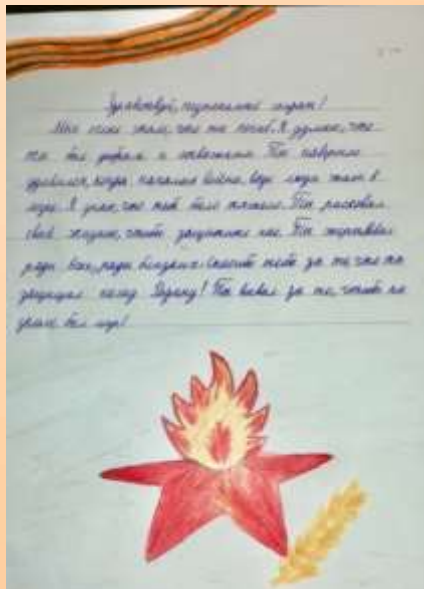 Здравствуй, неизвестный солдат!
Мне очень жаль, что ты погиб. Я думаю, что
ты был добрым и отважным. Ты наверное
удивился, когда началась война, ведь люди жили в
мире. Я знаю, что тебе было тяжело. Ты рисковал
своей жизнью, чтобы защитить нас. Ты
ради всех, ради близких. Спасибо тебе за то что ты
защищал нашу Родину! Ты воевал за то, чтобы на
земле был мир!